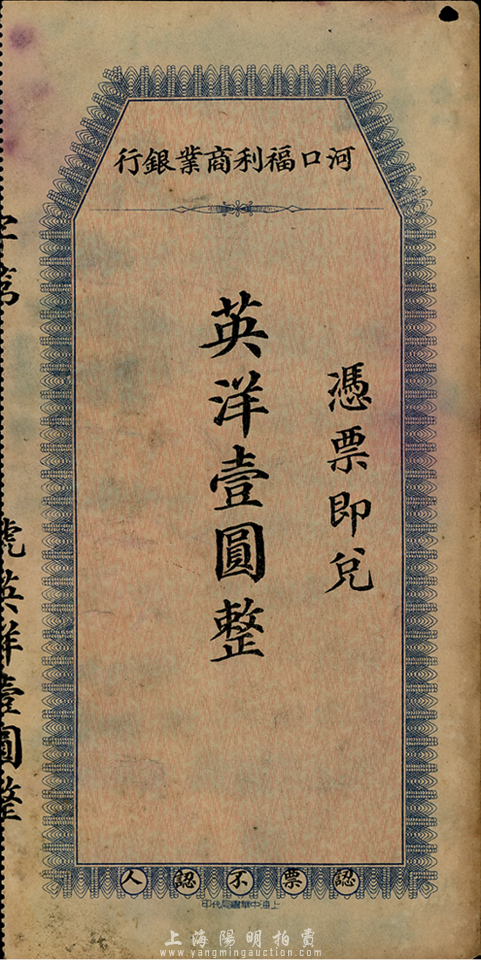 河口福利商業銀行
憑票即兌
英洋壹圓整
字第
號英洋壹圓整
認票不認人
上海中華書局代印
上海陽明拍賣
www.yangmingauction.com